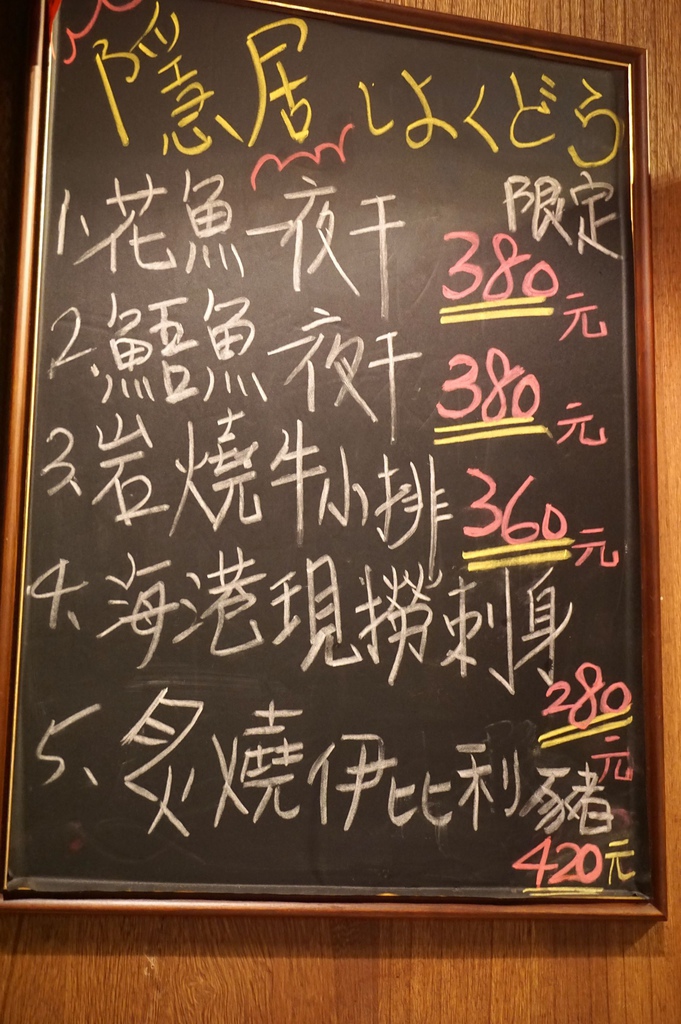 隱居しよくどう
限定
1、花魚一夜干 380元
2、鯃魚一夜干 380元
3、岩燒牛小排 360元
4、海港現撈刺身
280元
5、炙燒伊比利豬
420元